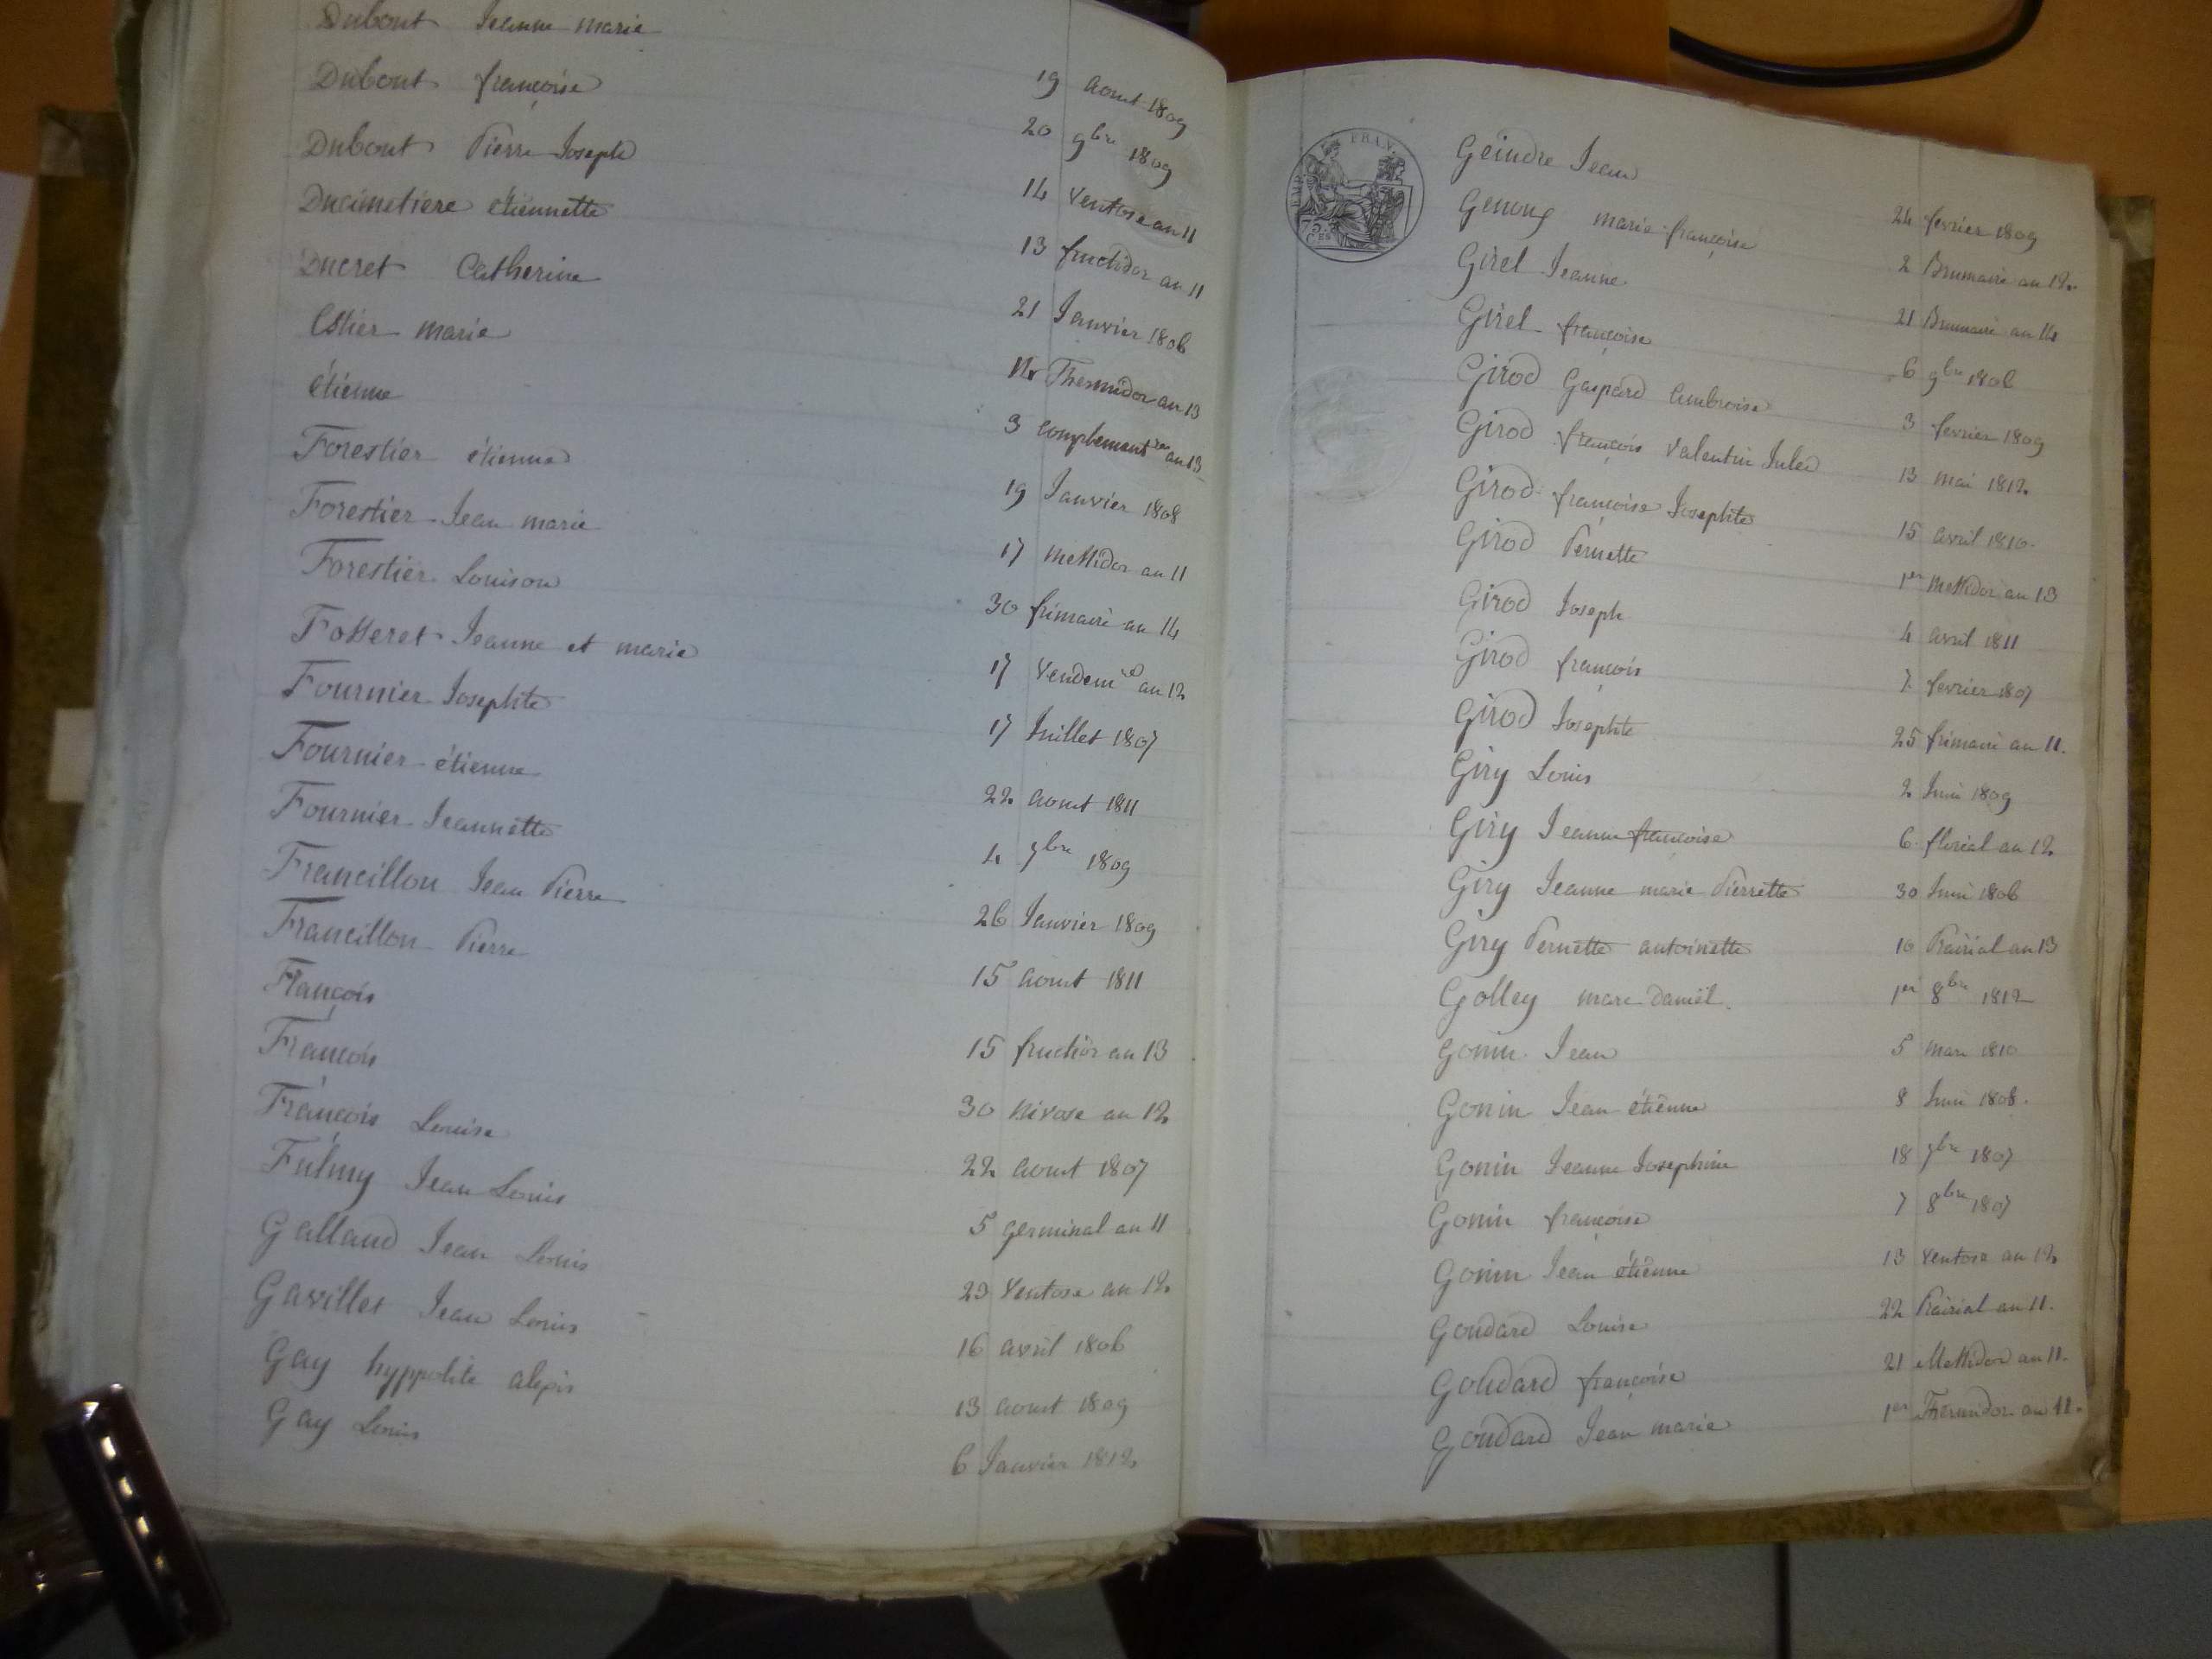 Dubout Jeanne marie 19 aout 1809
Dubout françoise 20 9bre 1809
Dubout Pierre Joseph 14 Ventose an 11
Ducimetiere étiennette 13 fructidor an 11
Ducret Catherine 21 Janvier 1806
Estier marie 12 Thermidor an 13
étienne 3 complement an 13
Forestier étienne 19 Janvier 1808
Forestier Jean marie 17 Messidor an 11
Forestier Louison 30 frimaire an 14
Fosseret Jeanne et marie 17 Vendemre an 12
Fournier Josephte 17 Juillet 1807
Fournier étienne 22 aout 1811
Fournier Jeannette 4 9bre 1809
Francillon Jean Pierre 26 Janvier 1809
Francillon Pierre 15 aout 1811
François 15 fructidor an 13
François 30 Nivose an 12
François Louise 22 aout 1807
Fulmy Jean Louis 5 germinal an 11
Galland Jean Louis 23 Ventose an 12
Gavillet Jean Louis 16 avril 1806
Gay hyppolite alexis 13 aout 1809
Gay Louis 6 Janvier 1812
EMP. FRAN.
75. CES
Geindre Jean 24 fevrier 1809
Genoux marie françoise 2 Brumaire an 12.
Girel Jeanne 21 Brumaire an 14
Girel françoise 6 9bre 1806
Girod Gaspard Ambroise 3 fevrier 1809
Girod françois Valentin Jules 13 mai 1812
Girod françoise Josephte 15 avril 1810
Girod Pernette 1er Messidor an 13
Girod Joseph 4 avril 1811
Girod françois 7 fevrier 1807
Girod Josephte 25 frimaire an 11.
Giry Louis 2 Juin 1809
Giry Jeanne françoise 6 floréal an 12
Giry Jeanne marie Pierrette 30 Juin 1806
Giry Pernette antoinette 10 Prairial an 13
Golley marc Daniel 1er 8bre 1812
Gonin Jean 5 mars 1810
Gonin Jean étienne 8 Juin 1808.
Gonin Jeanne Josephine 18 9bre 1807
Gonin françoise 7 8bre 1807
Gonin Jean étienne 13 Ventose an 12
Goudard Louise 22 Prairial an 11.
Goudard françoise 21 Messidor an 11.
Goudard Jean marie 1er Thermidor an 11.